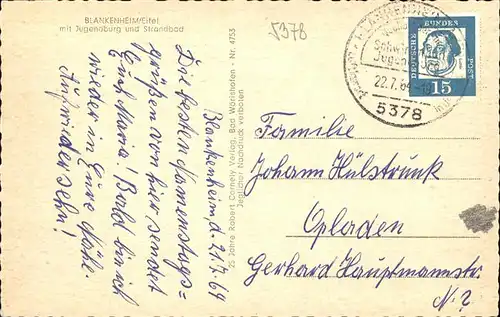 BLANKENHEIM/Eifel
mit Jugendburg und Strandbad
5378
Blankenheim, d. 21.7.64
Die besten Namenstags=
grüßen von hier sendet
Euch Maria! Bald bin ich
wieder in Eure Nähe.
Aufwiedersehn!
25 Jahre Robert Cornely Verlag, Bad Wörishofen - Nr. 4753
Jeglicher Nachdruck verboten
22.7.64
5378
DEUTSCHE BUNDESPOST
15
Familie
Johann Hülstrunk
Opladen
Gerhard Hauptmannstr.
N. ?